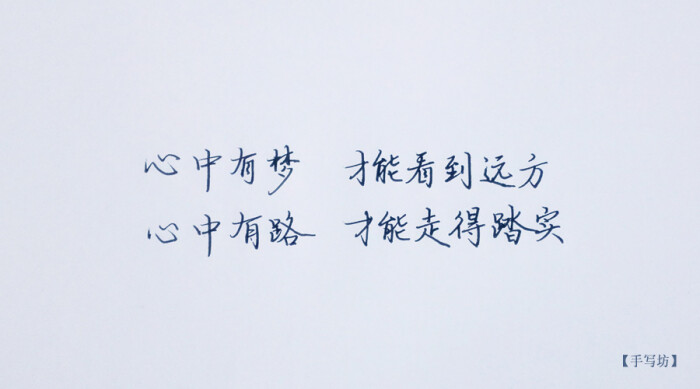 心中有梦 才能看到远方
心中有路 才能走得踏实
【手写坊】